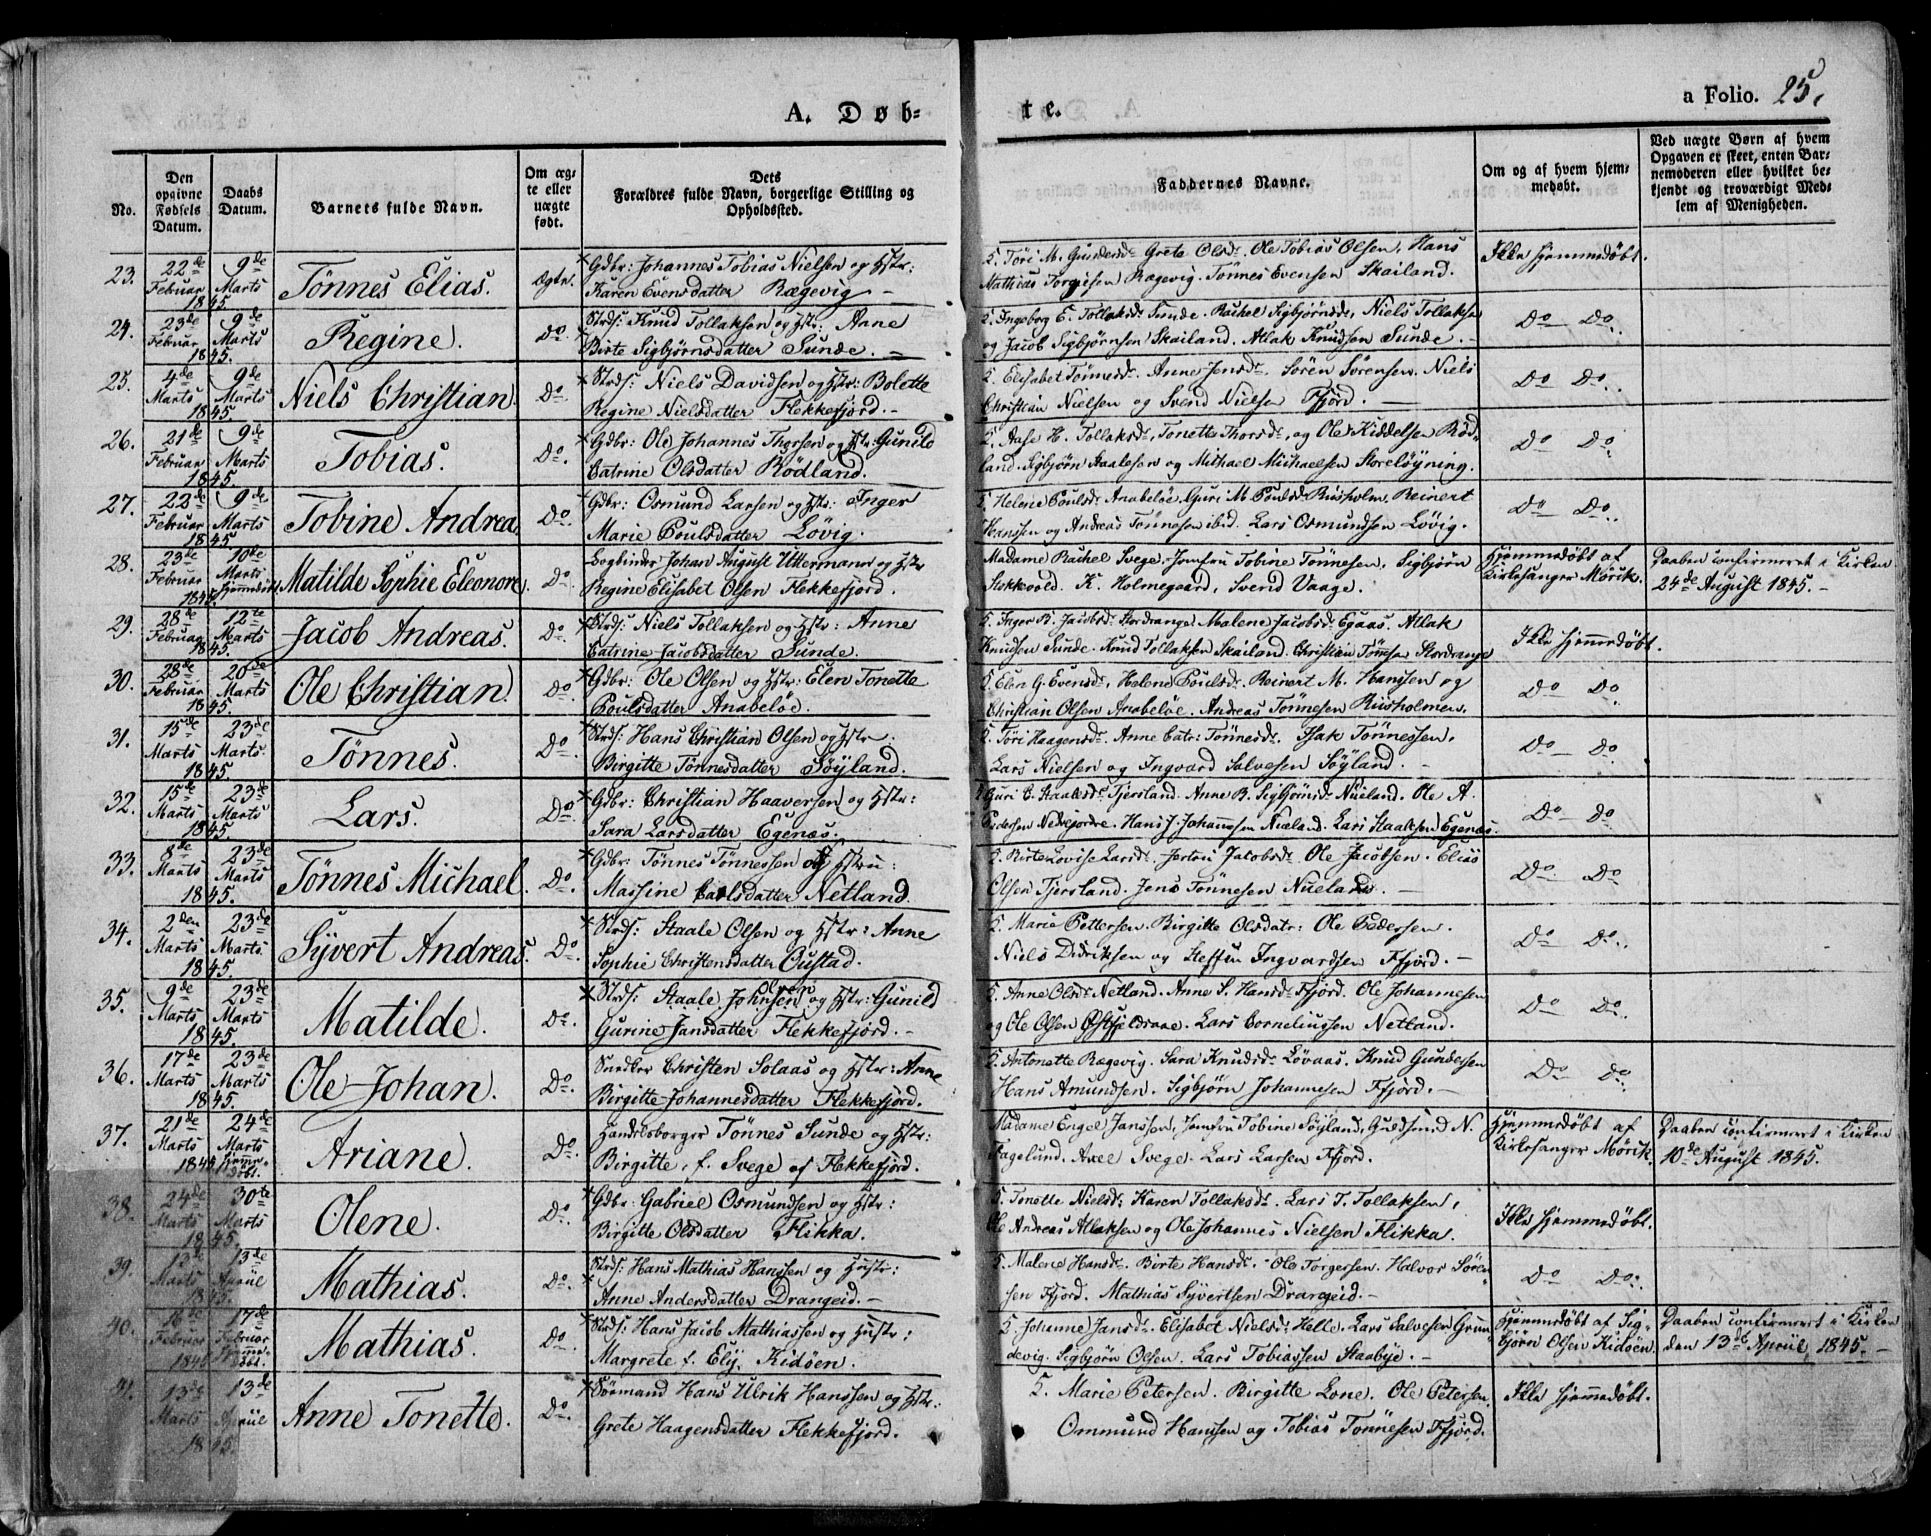 a Folio. 25.
A. Døb-te.
No.
Den opgivne Fødsels Datum.
Daabs Datum.
Barnets fulde Navn.
Om ægte eller uægte født.
Dets Forældres fulde Navn, borgerlige Stilling og Opholdssted.
Faddernes Navne.
Om og af hvem hjemmedøbt.
Ved uægte Børn af hvem Opgaven er skeet, enten Barnemoderen eller hvilket bekjendt og troværdigt Medlem af Menigheden.
23. 22de Februar 1845. 9de Marts Tønnes Elias. Ægte.
Gdbr: Johannes Tobias Nielsen og Hstr:
Karen Evensdatter Rægevig –
Töri M. Gundersdr Grete Olsdr Ole Tobias Olsen. Hans
Mathias Torgiesen Rægevig. Tønnes Evensen Skailand.
Ikke hjemmedøbt.
24. 23de Februar 1845. 9de Marts Regine. Do.
Strds: Knud Tollaksen og Hstr: Anne
Birte Sigbjørnsdatter Sunde. –
Ingeborg E. Tollaksdr Sunde. Rachel Sigbjørnsdr, Niels Tollaksen
og Jacob Sigbjørnsen Skailand. Atlak Knudsen Sunde. –
Do – Do.
25. 4de Marts 1845. 9de Marts Niels Christian. Do
Strds: Niels Davidsen og Hstr: Bolette
Regine Nielsdatter Flekkefjord. –
Elisabet Tønnesdr. Anne Jensdr. Sören Sörensen. Niels
Christian Nielsen og Svend Nielsen Ffjord. –
Do Do.
26. 21de Februar 1845. 9de Marts Tobias. Do.
Gdbr: Ole Johannes Thorsen og Hstr: Gunild
Catrine Olsdatter Rödland.
Aase H. Tollaksdr, Tonette Thorsdr, og Ole Kiddelsen Rödland.
Sigbjørn Staalesen og Mithael Michaelsen Storeløyning.
Do Do
27. 22de Februar 1845. 9de Marts Tobine Andrea Do.
Gdbr: Osmund Larsen og Hstr: Inger
Marie Poulsdatter Lövig.
Helene Poulsdr Anabeløe. Guri M. Poulsd. Rüsholm. Reinert
Hanssen og Andreas Tönnesen ibid. Lars Osmundsen Lövig.
Do Do.
28. 23de Februar 1845. 10de Marts hjemmedøbt Matilde Sophie Eleonore. Do.
Bogbinder Johan August Uttermann og Hstr
Regine Elisabet Olsen Flekkefjord.
Madame Rachel Svege. Jomfru Tobine Tønnesen, Sigbjörn
Stokkvold. K. Holmegaard, Svend Vaage.
Hjemmedøbt af
Kirkesanger Mörik.
Daaben confirmeret i Kirken
24de August 1845. –
29. 28de Februar 1845. 12te Marts Jacob Andreas. Do
Strds: Niels Tollaksen og Hstr: Anne
Catrine Jacobsdatter Sunde.
Inger B. Jacobsd. Stordrange. Malene Jacobsdr Egaas. Atlak
Knudsen Sunde. Knud Tollaksen Skailand. Christian Tønnesen Stordrange
Ikke hjemmedøbt.
30. 28de Februar 1845. 20de Marts Ole Christian. Do
Gdbr: Ole Olsen og Hstr: Elen Tonette
Poulsdatter Anabeløe.
Elen G. Evensdr, Helene Poulsdr. Reinert M. Hanssen og
Christian Olsen Anabeløe. Andreas Tönnesen Rüsholmen.
Do Do
31. 15de Marts 1845. 23de Marts. Tønnes. Do
Strds: Hans Christian Olsen og Hstr.
Birgitte Tønnesdatter Söyland.
Töri Haagensdr. Anne Catr: Tønnesdr. Isak Tönnessen.
Lars Nielsen og Ingvard Salvesen Söyland.
Do – Do
32. 15de Marts 1845. 23de Marts Lars. Do
Gdbr: Christian Haaversen og Hstr:
Sara Larsdatter Egenæs.
Guri C. Staalesdr Tjersland. Anne B. Sigbjörnsdr Nüeland. Ole A.
Pedersen Nedrejordre. Hans J. Johannssen Nüeland. Lars Staalesen Egenæs.
Do – Do
33. 8de Marts 1845. 23de Marts Tønnes Michael. Do.
Gdbr: Tønnes Tønnessen og Hstru:
Massine Carlsdatter Netland.
Birte Lovise Larsdr. Jertru Jacobsdr Ole Jacobsen. Elias
Olsen Tjersland. Jens Tönnesen Nueland. –
Do Do
34. 2den Marts 1845. 23de Marts. Syvert Andreas. Do
Strds: Staale Olsen og Hstr: Anne
Sophie Christensdatter Qustad.
Marie Pettersen. Birgitte Olsdatr: Ole Pedersen.
Niels Didriksen og Steffen Ingvardsen Ffjord. –
Do Do.
35. 9de Marts 1845. 23de Marts Matilde. Do.
Strds: Staale Johnsen og Hstr: Gunild
Gurine Jansdatter Flekkefjord. –
Anne Olsdr Netland. Anne S. Hansdr Ffjord. Ole Johannesen
og Ole Olsen Østfjeldraae. Lars Corneliussen Netland.
Do Do.
36. 17de Marts 1845. 23de Marts Ole Johan. Do.
Christen Solaas og Hstr: Anne
Birgitte Johannesdatter Flekkefjord.
Antonette Rægevig. Sara Knudsdr Lövaas. Knud Gundersen
Hans Amundsen. Sigbjørn Johannesen Ffjord. –
Do Do.
37. 21de Marts 1845 24de Marts hjemmedøbt. Ariane. Do.
Handelsborger Tönnes Sunde og Hstr:
Birgitte, f. Svege af Flekkefjord.
Madame Engel Janssen, Jomfru Tobine Söyland, Gudsmed N.
Fagelund. Axel Svege. Lars Larsen Ffjord.
Hjemmedøbt af
Kirkesanger Mörik.
Daaben confirmeret i Kirken
10de August 1845.
38. 24de Marts 1845. 30te Marts Olene. Do.
Gdbr: Gabriel Osmundsen og Hstr:
Birgitte Olsdatter Flikka.
Tonette Nielsdr Karen Tollaksdr. Lars T. Tollaksen,
Ole Andreas Atlaksen og Ole Johannes Nielsen Flikka.
Ikke hjemmedøbt.
39. 13de Marts 1845. 13de Apriil Mathias. Do.
Strds: Hans Mathias Hanssen og Hustr:
Anne Andersdatter Drangeid. –
Malene Hansdr. Birte Hansdr. Ole Torgersen. Halvor Sörensen
Ffjord. Mathias Syvertsen Drangeid. –
Do Do.
40. 16de Februar 1845 17de Februar hjemmedøbt. Mathias. Do
Strds: Hans Jacob Mathiassen og Hustr:
Margrete f. Elj. Kidöen.
Johanne Jansdr. Elisabet Nielsdr Helle. Lars Salvesen Grundevig.
Sigbjörn Olsen. Lars Tobiassen Staabye. –
Hjemmedøbt af Sigbjörn
Olsen Kidöen.
Daaben confirmeret i Kirken
den 13de Apriil 1845. –
41. 13de Marts 1845 13de Apriil Anne Tonette. Do.
Sömand Hans Ulrik Hanssen og Hstr:
Grete Haagensdatter Flekkefjord.
Marie Petersen. Birgitte Lone. Ole Petersen.
Ommund Hanssen og Tobias Tönnesen Ffjord.
Ikke hjemmedøbt.